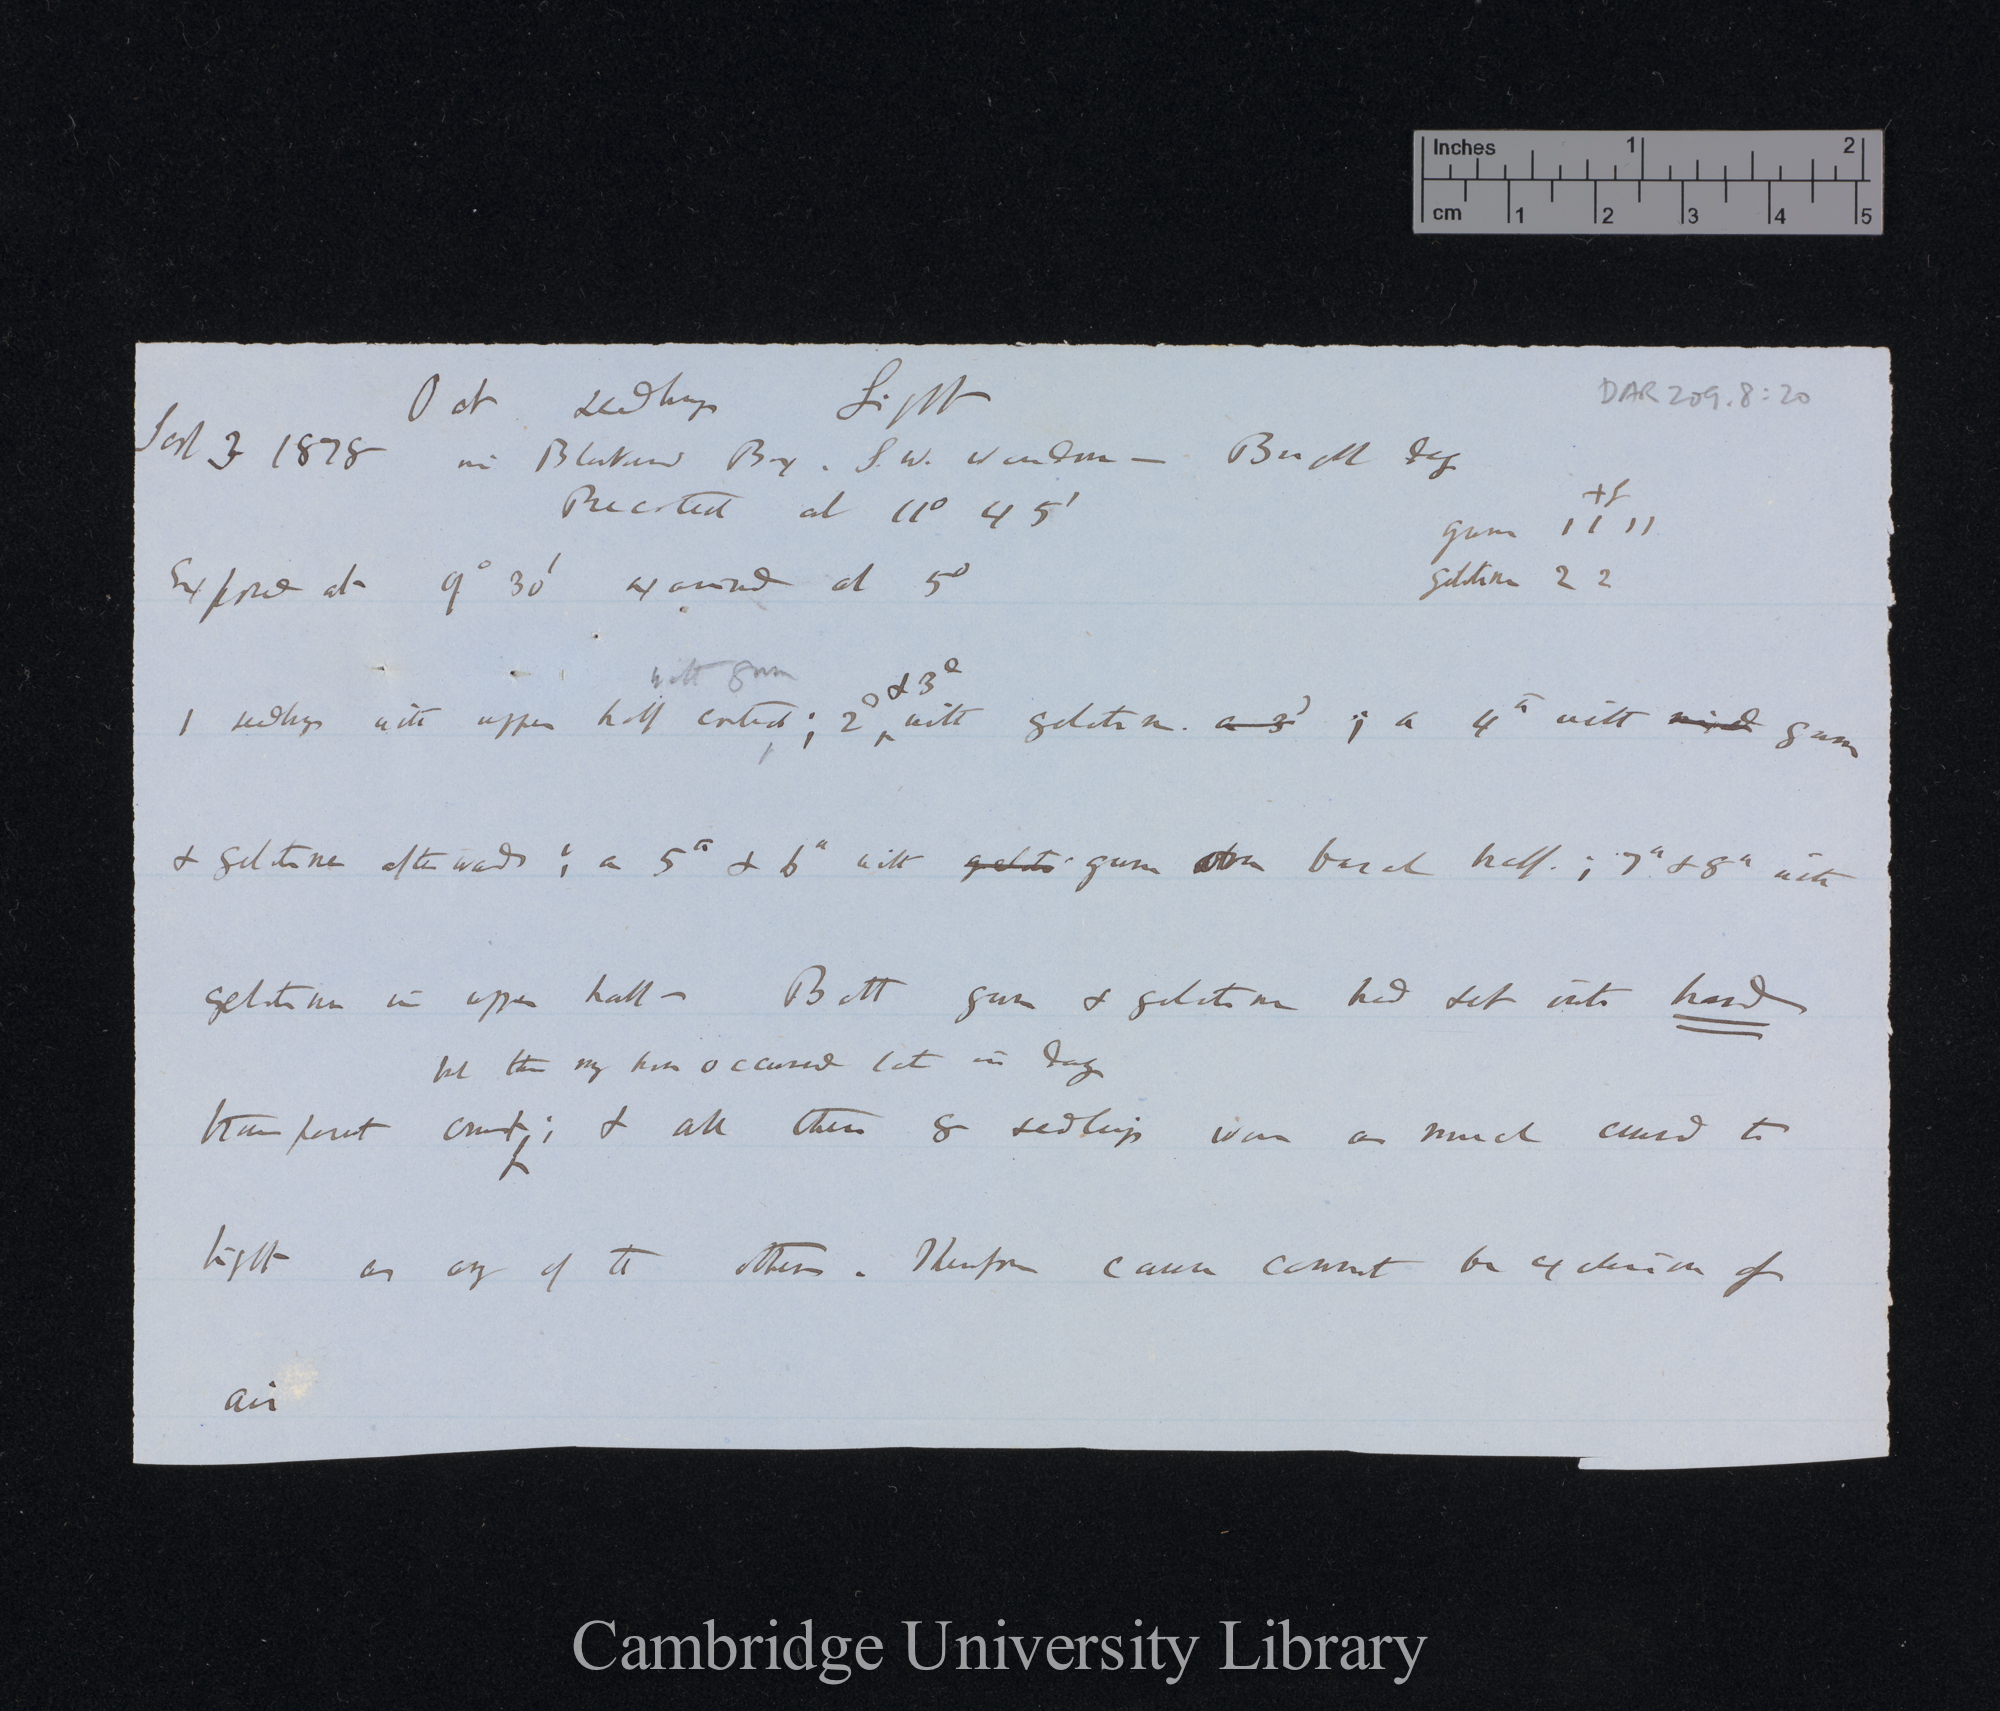 Inches 1 2
cm 1 2 3 4 5
DAR 209.8:20
Oat seedlings Light
Sept 3 1878 in Blackened Box. S.W. window — Bright day
Recoated at 11° 45'
+ g
gum 1 1 1 1
gelatine 2 2
Exposed at 9° 30' examined at 5°
with gum
& 3°
1 seedling with upper half coated; 2° with gelatine. a 3° ; a 4th with mixed gum
& gelatine afterwards; a 5th & 6th with gelati gum basal half.; 7th & 8th with
gelatine in upper half — Both gum & gelatine had set into hard
but this may have occurred late in day
transparent crust; & all these 8 seedlings were as much curved to
light as any of the others. Therefore cause cannot be exclusion of
air
Cambridge University Library